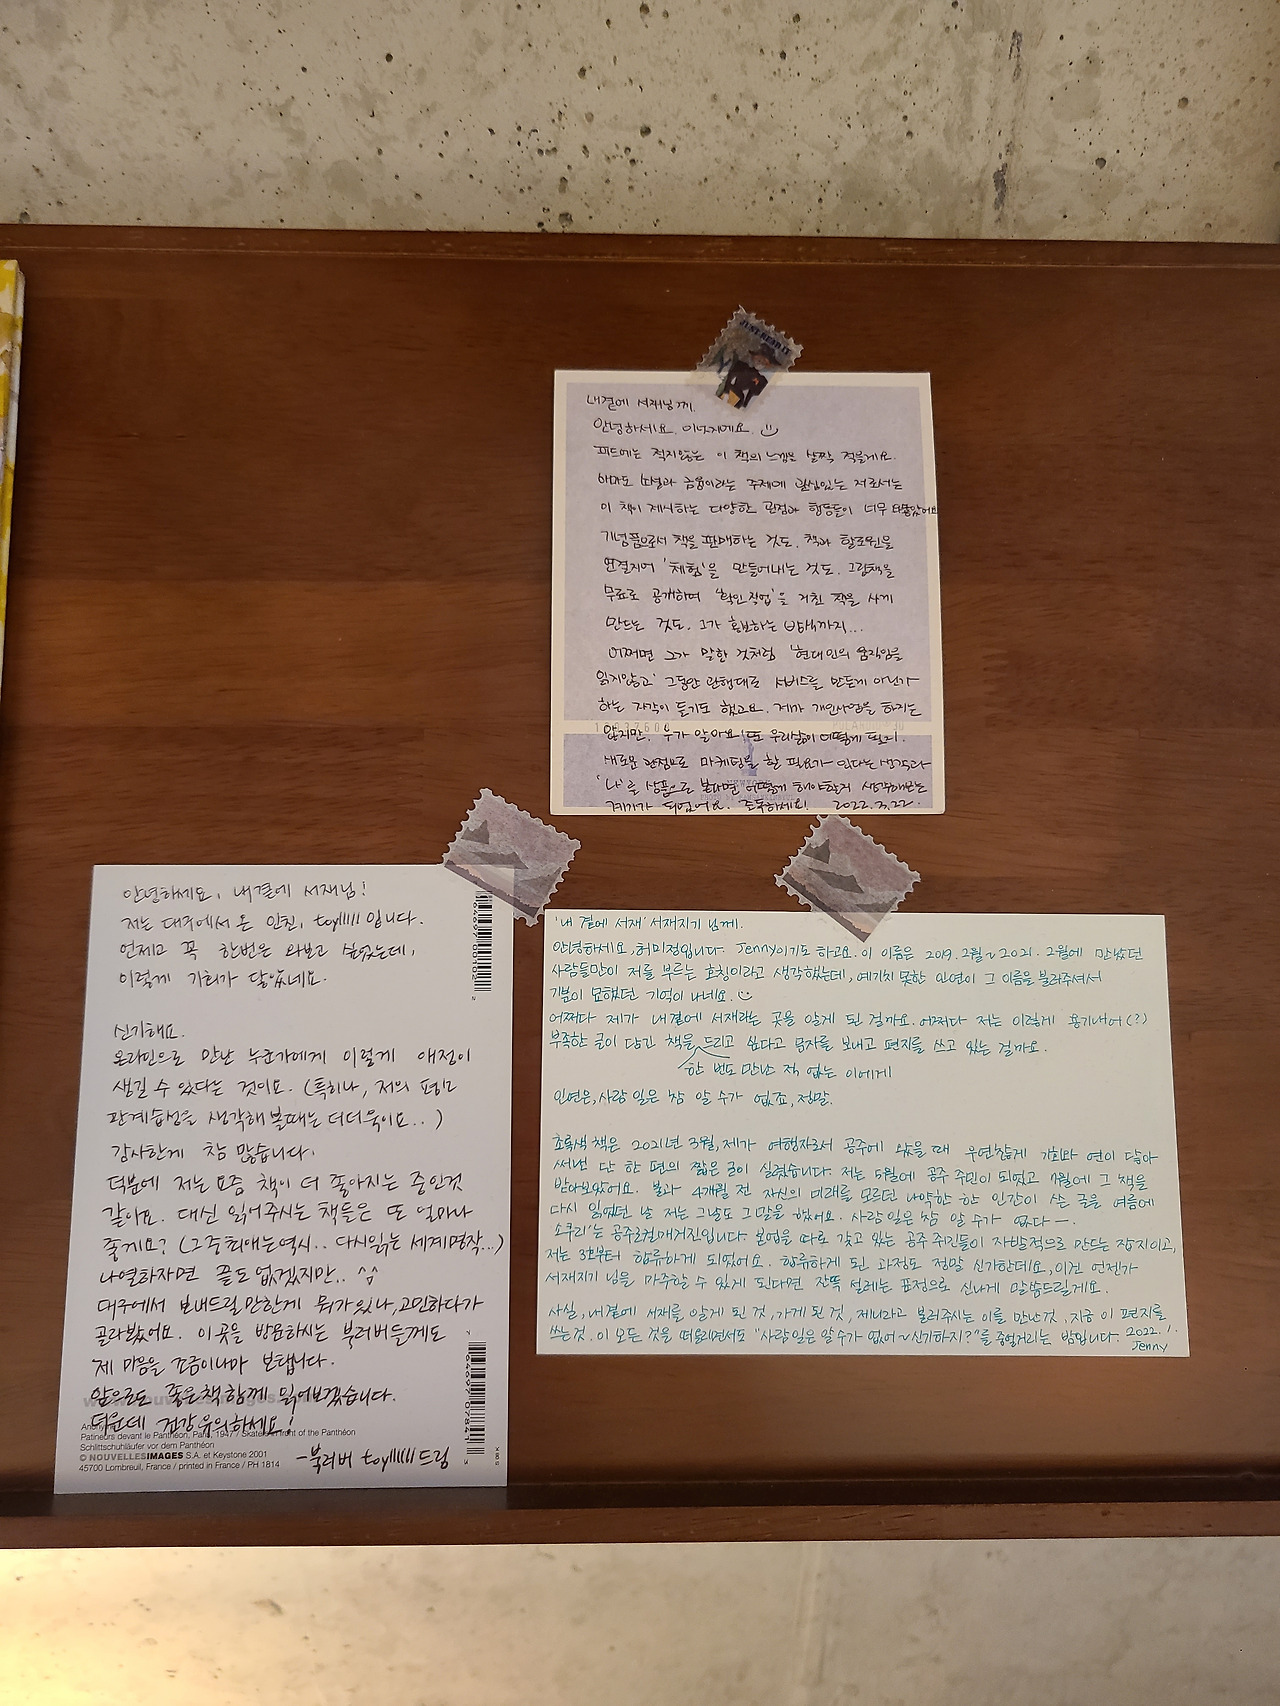 JUST READ IT
내곁에 서재님께.
안녕하세요. 이너지에요.
피드에는 적지않은 이 책의 느낌을 살짝 적을게요.
아마도 소설과 금융이라는 주제에 관심있는 저로서는
이 책이 제시하는 다양한 관점과 행동들이 너무 와닿았어요
기념품으로서 책을 판매하는 것도, 책과 할로윈을
연결지어 '체험'을 만들어내는 것도, 그림책을
무료로 공개하며 '확인작업'을 거친 책을 사게
만드는 것도. 그가 홍보하는 방식까지...
어쩌면 그가 말한 것처럼 '현대인의 움직임을
읽지않고' 그동안 관행대로 서비스를 만든게 아닌가
하는 자각이 들기도 했고요. 제가 개인사업을 하지는
않지만, 누가 알아요! 또 우리삶이 어떻게 될지.
새로운 관점으로 마케팅을 할 필요가 있다는 생각과
'나'를 상품으로 본다면 어떻게 해야할지 생각해보는
계기가 되었어요. 굿독하세요! 2022.3.22.
안녕하세요, 내곁에 서재님!
저는 대구에서 온 인친, toyllllll 입니다.
언제고 꼭 한번은 와보고 싶었는데,
이렇게 기회가 닿았네요.
신기해요.
온라인으로 만난 누군가에게 이렇게 애정이
생길 수 있다는 것이요. (특히나, 저의 평소
관계습성을 생각해 볼때는 더더욱이요..)
감사한게 참 많습니다.
덕분에 저는 요즘 책이 더 좋아지는 중인것
같아요. 대신 읽어주시는 책들은 또 얼마나
좋게요? (그중 최애는 역시.. 다시읽는 세계명작...)
나열하자면 끝도 없겠지만.. ^^
대구에서 보내드릴만한게 뭐가있나, 고민하다가
골라봤어요. 이 곳을 방문하시는 북러버들께도
제 마음을 조금이나마 보탭니다.
앞으로도 좋은책 함께 읽어보겠습니다.
더운데 건강유의하세요!
-북러버 toyllllll 드림
Patineurs devant le Panthéon, Paris, 1947 / Skaters in front of the Panthéon
Schlittschuhläufer vor dem Panthéon
© NOUVELLESIMAGES S.A. et Keystone 2001
45700 Lombreuil, France / printed in France / PH 1814
'내 곁에 서재' 서재지기 님께.
안녕하세요, 허미정입니다. Jenny이기도 하고요. 이 이름은 2019. 2월~2021. 2월에 만났던
사람들만이 저를 부르는 호칭이라고 생각했는데, 예기치 못한 인연이 그 이름을 불러주셔서
기분이 묘했던 기억이 나네요.
어쩌다 제가 내곁에 서재라는 곳을 알게 된 걸까요. 어쩌다 저는 이렇게 용기내어(?)
부족한 글이 담긴 책을 드리고 싶다고 문자를 보내고 편지를 쓰고 있는 걸까요.
한 번도 만난 적 없는 이에게
인연은, 사람 일은 참 알 수가 없죠, 정말.
초록색 책은 2021년 3월, 제가 여행자로서 공주에 왔을 때 우연찮게 기회와 연이 닿아
써낸 단 한 편의 짧은 글이 실렸습니다. 저는 5월에 공주 주민이 되었고 7월에 그 책을
받아보았어요. 불과 4개월 전 자신의 미래를 모르던 나약한 한 인간이 쓴 글을 여름에
다시 읽었던 날 저는 그날도 그 말을 했어요. 사람 일은 참 알 수가 없다—.
'소쿠리'는 공주로컬매거진입니다. 본업을 따로 갖고 있는 공주 주민들이 자발적으로 만드는 잡지이고,
저는 3호부터 합류하게 되었어요. 합류하게 된 과정도 정말 신기한데요, 이건 언젠가
서재지기 님을 마주할 수 있게 된다면 잔뜩 설레는 표정으로 신나게 말씀드릴게요.
사실, 내곁에 서재를 알게 된 것, 가게 된 것, 제니라고 불러주시는 이를 만난 것, 지금 이 편지를
쓰는 것. 이 모든 것을 떠올리면서도 "사람일은 알 수가 없어~신기하지?"를 중얼거리는 밤입니다. 2022. 1.
Jenny